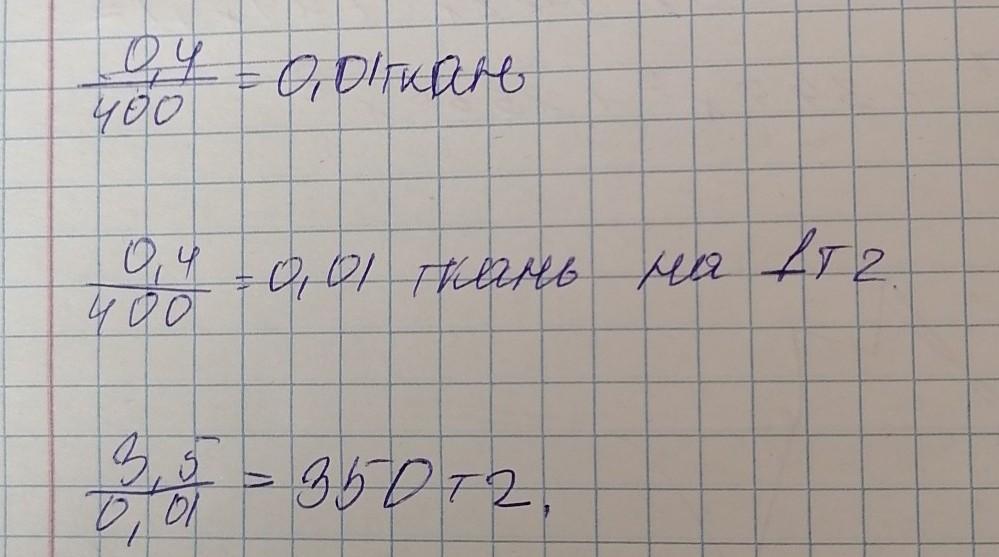 0,4/400 = 0,01 ткань
0,4/400 = 0,01 ткань на 1 т 2.
3,5/0,01 = 350 т 2.